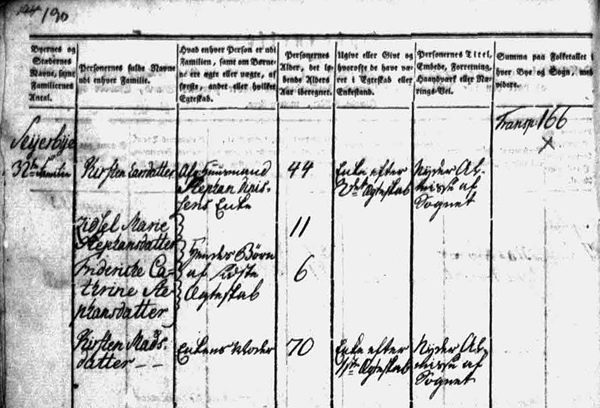 190
Byernes og
Stædernes
Navne, samt
Familiernes
Antal.
Personernes fulde Navne
udi enhver Familie.
Hvad enhver Person er udi
Familien, samt om Børne-
ne ere ægte eller uægte, af
første, andet eller hvilket
Egteskab.
Personernes
Alder, det lø-
bende Alders
Aar iberegnet.
Ugivt eller Givt og
hvorofte de have væ-
ret i Egteskab eller
Enkestand.
Personernes Titel,
Embede, Forretning,
Haandværk eller Næ-
rings-Vei.
Summa paa Folketallet i
hver Bye og Sogn, med
videre.
Transp 166
Seijerbÿe
32te Familie
Kirsten Larsdatter
Afg. Huusmand
Stephan
sens Enke
44
Enke efter
2det Ægteskab
Nyder Al-
misse af
Sognet
Zidsel Marie
Stephansdatter
11
Friderike Ca-
thrine Ste-
phansdatter
Hendes Børn
af sidste
Ægteskab
6
Kirsten Mads-
datter
Enkens Moder
70
Enke efter
1ste Ægteskab
Nyder Al-
misse af
Sognet